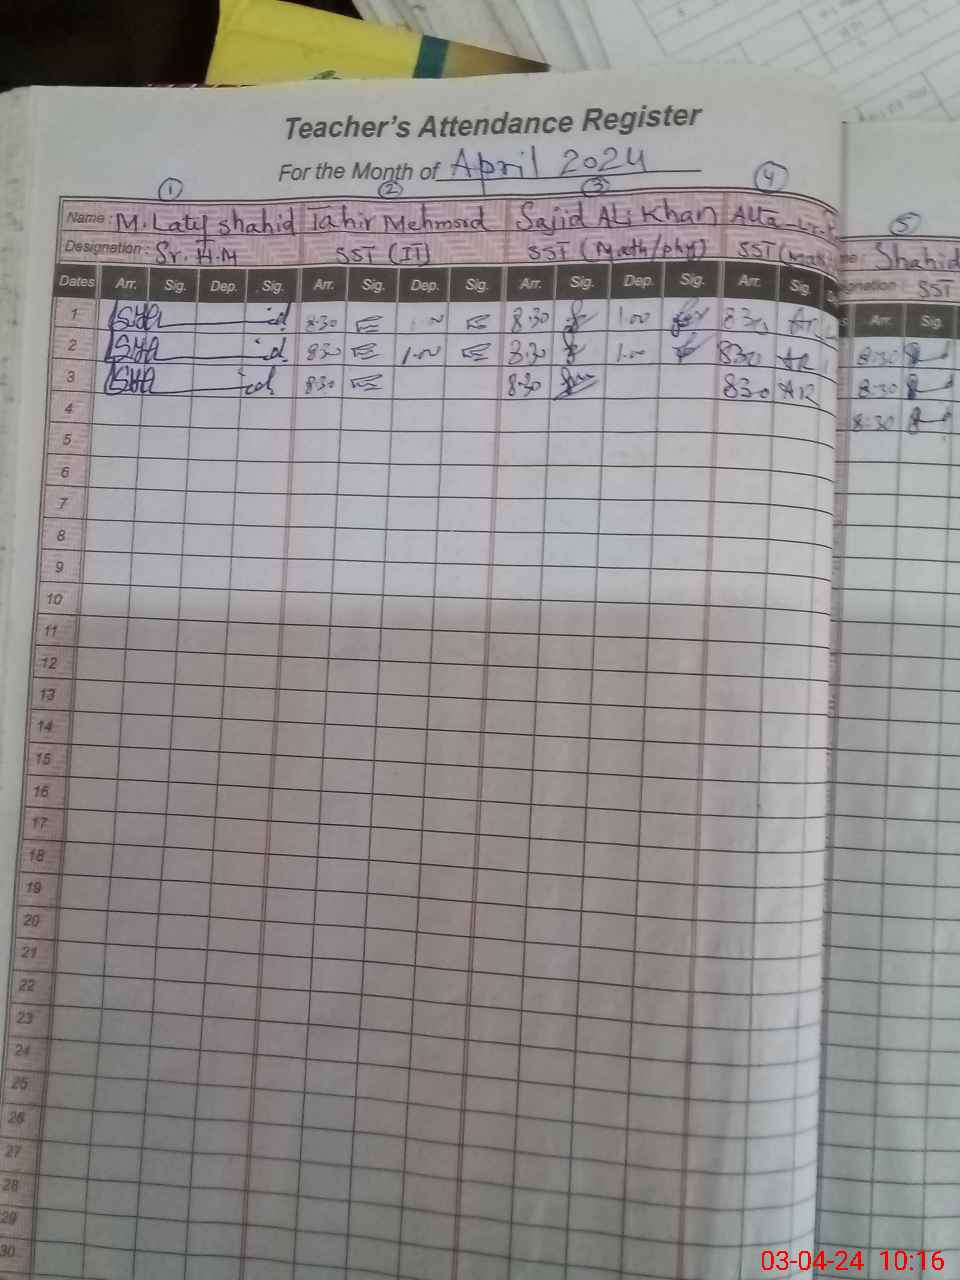 Teacher's Attendance Register
For the Month of April 2024
1 2 3 4 5
Name: M. Latif Shahid Tahir Mehmood Sajid Ali Khan Shahid
Designation: Sr. H.M SST (IT) SST (Math/phy) SST SST
Dates Arr. Sig. Dep. Sig. Arr. Sig. Dep. Sig. Arr. Sig. Dep. Sig. Arr. Sig. Arr. Sig.
1 8.30 8.30 1.00 830
2 830 1.00 8.30 1.00 830 AR 8:30
3 830 8.30 830 AR 8.30
4 8:30
5
6
7
8
9
10
11
12
13
14
15
16
17
18
19
20
21
22
23
24
25
26
27
28
29
30
03-04-24 10:16